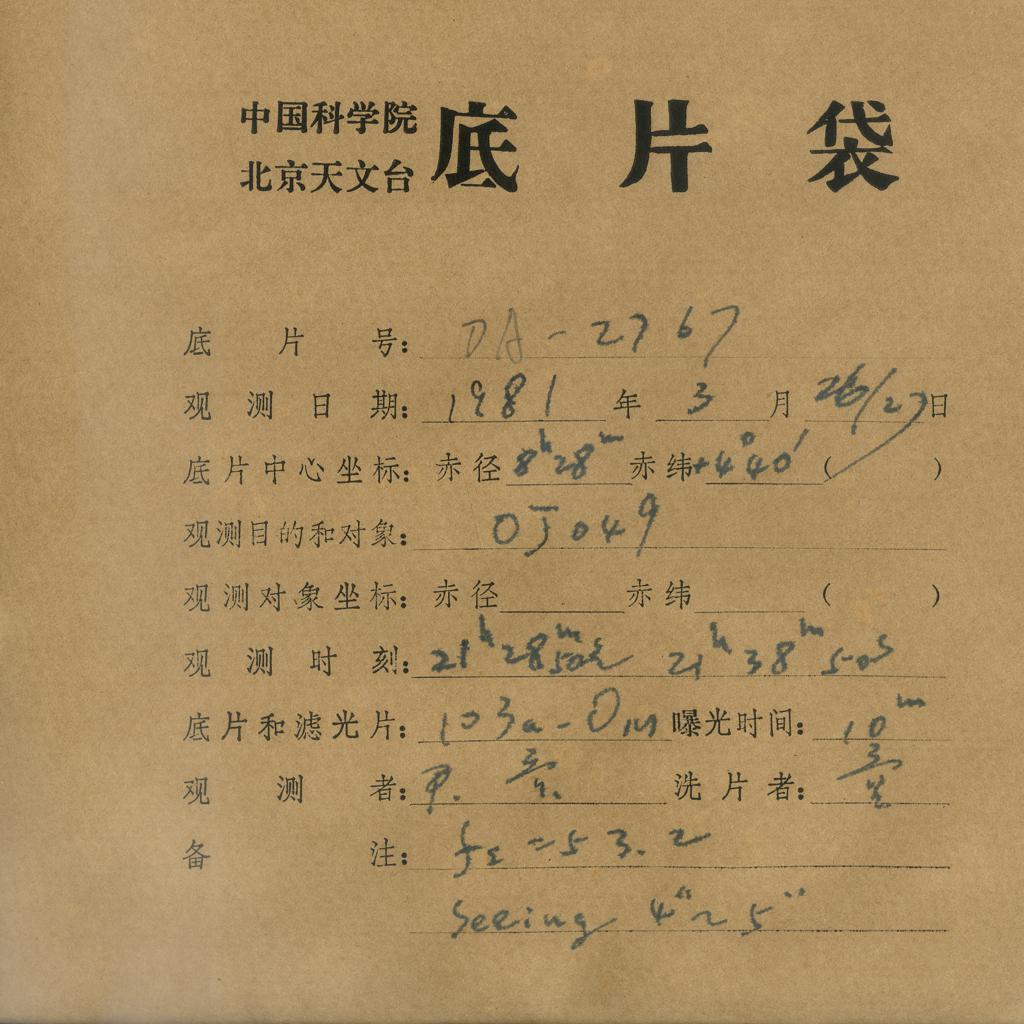 中国科学院
北京天文台
底片袋
底片号: DA-2767
观测日期: 1981 年 3 月 26/27 日
底片中心坐标: 赤径 8h28m 赤纬 +4°40′ ( )
观测目的和对象: OJ049
观测对象坐标: 赤径 赤纬 ( )
观测时刻: 21h28m50s 21h38m50s
底片和滤光片: 103a-O 曝光时间: 10m
观测者: 洗片者:
备注: =53.2
Seeing 4"~5"